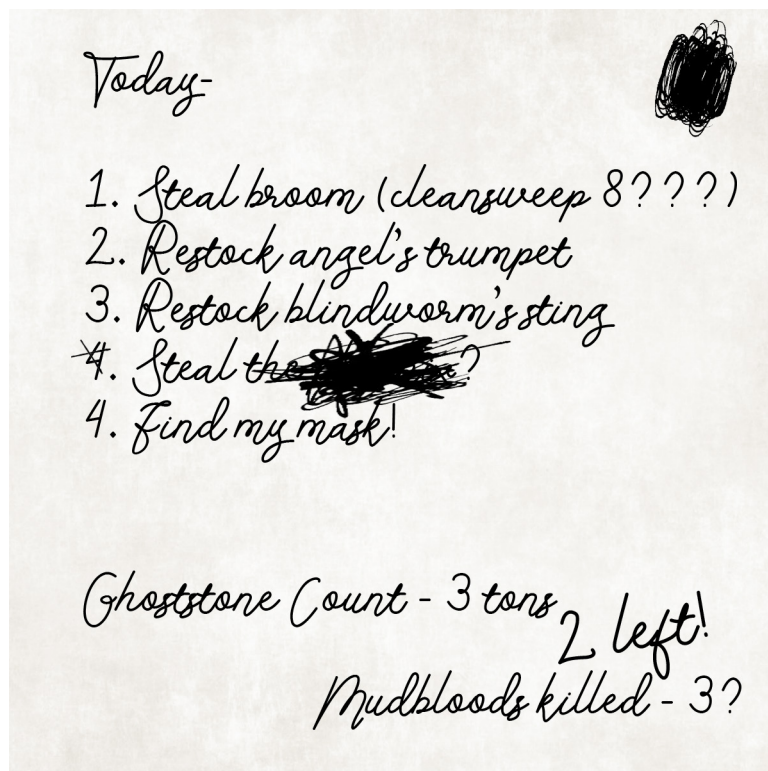 Today-
1. Steal broom (cleansweep 8???)
2. Restock angel's trumpet
3. Restock blindworm's sting
4. Steal the ?
4. Find my mask!
Ghoststone Count - 3 tons
2 left!
Mudbloods killed - 3?